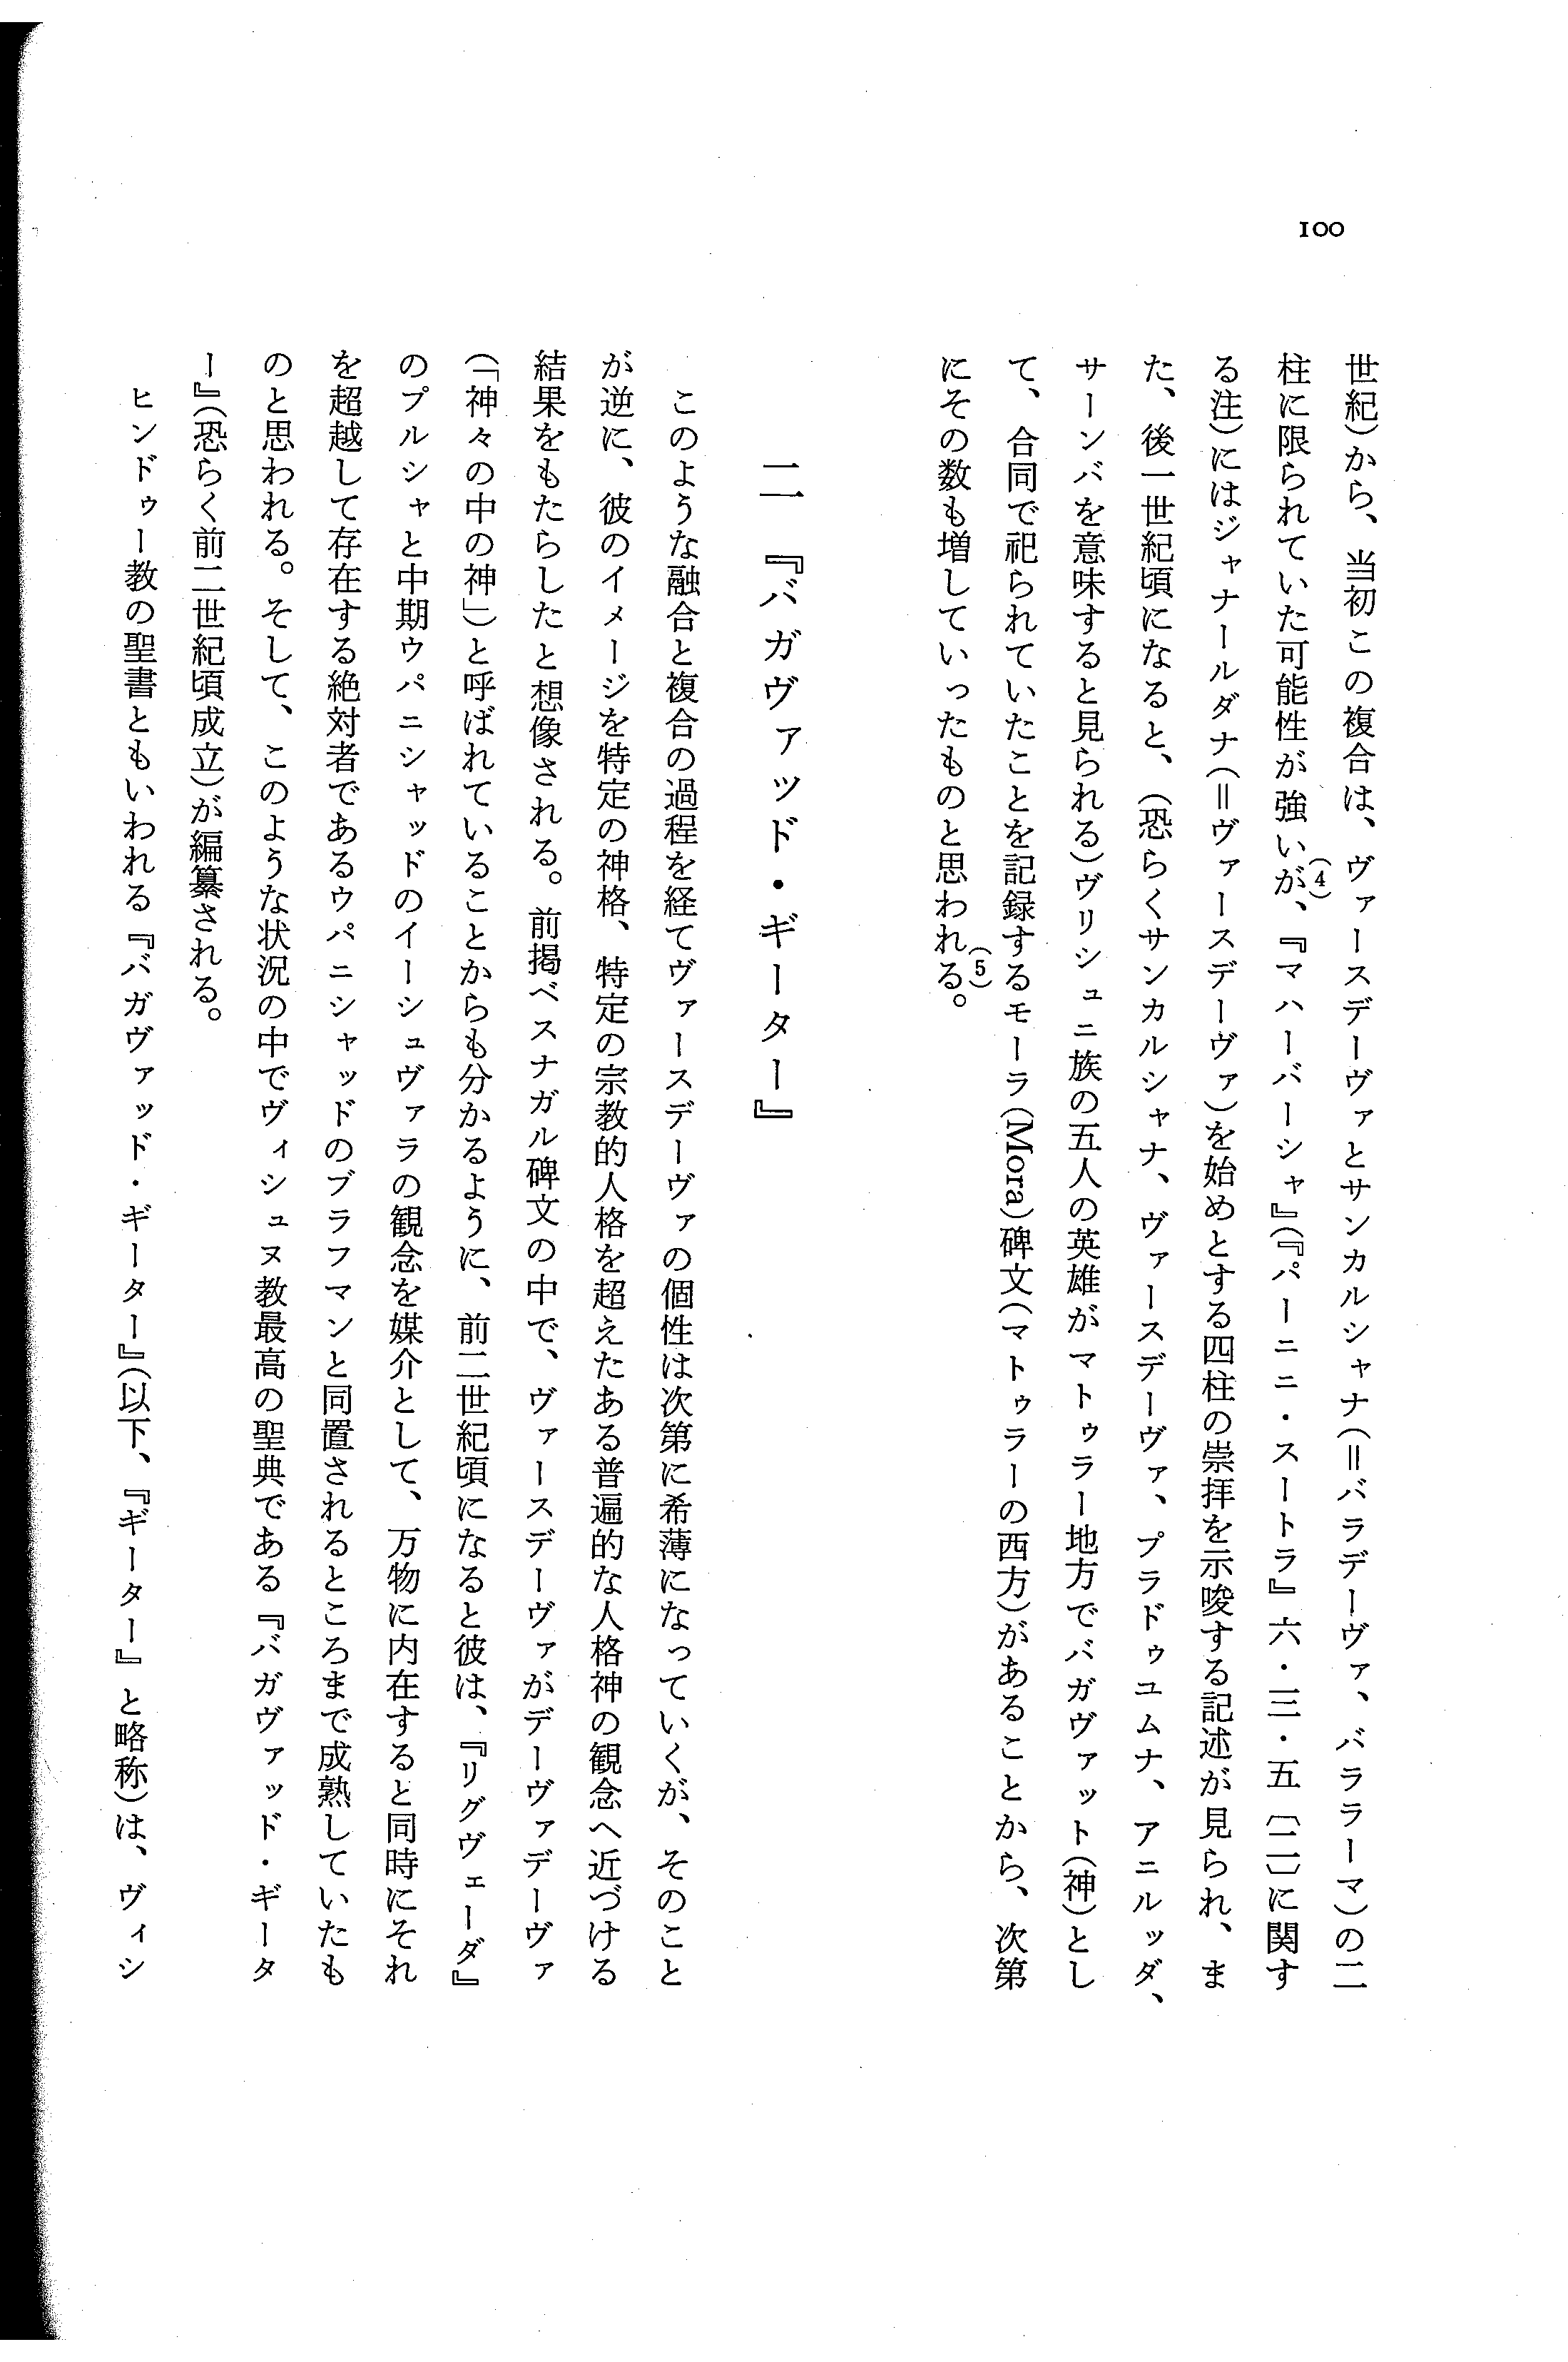 100
世紀)から、当初この複合は、ヴァースデーヴァとサンカルシャナ(=バラデーヴァ、バララーマ)の二
柱に限られていた可能性が強いが、(4)『マハーバーシャ』(『パーニニ・スートラ』六・三・五〔二〕に関す
る注)にはジャナールダナ(=ヴァースデーヴァ)を始めとする四柱の崇拝を示唆する記述が見られ、ま
た、後一世紀頃になると、(恐らくサンカルシャナ、ヴァースデーヴァ、プラドゥユムナ、アニルッダ、
サーンバを意味すると見られる)ヴリシュニ族の五人の英雄がマトゥラー地方でバガヴァット(神)とし
て、合同で祀られていたことを記録するモーラ(Mora)碑文(マトゥラーの西方)があることから、次第
にその数も増していったものと思われる。(5)
二 『バガヴァッド・ギーター』
このような融合と複合の過程を経てヴァースデーヴァの個性は次第に希薄になっていくが、そのこと
が逆に、彼のイメージを特定の神格、特定の宗教的人格を超えたある普遍的な人格神の観念へ近づける
結果をもたらしたと想像される。前掲ベスナガル碑文の中で、ヴァースデーヴァがデーヴァデーヴァ
(「神々の中の神」)と呼ばれていることからも分かるように、前二世紀頃になると彼は、『リグヴェーダ』
のプルシャと中期ウパニシャッドのイーシュヴァラの観念を媒介として、万物に内在すると同時にそれ
を超越して存在する絶対者であるウパニシャッドのブラフマンと同置されるところまで成熟していたも
のと思われる。そして、このような状況の中でヴィシュヌ教最高の聖典である『バガヴァッド・ギータ
ー』(恐らく前二世紀頃成立)が編纂される。
ヒンドゥー教の聖書ともいわれる『バガヴァッド・ギーター』(以下、『ギーター』と略称)は、ヴィシ